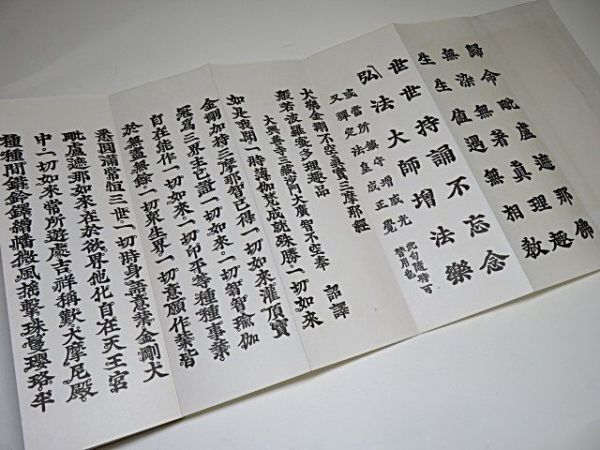 歸命毗盧遮那佛
無染無著眞理趣
生生値遇無相教
世世持誦不忘念
弘法大師増法樂
此句隨時可
替用也
或當所鎭守増威光
又禪定法皇成正覺
大樂金剛不空眞實三摩耶經
般若波羅蜜多理趣品
大興善寺三藏沙門大廣智不空奉 詔譯
如是我聞一時薄伽梵成就殊勝一切如來
金剛加持三摩耶智已得一切如來灌頂寶
冠爲三界主已證一切如來一切智智瑜伽
自在能作一切如來一切印平等種種事業
於無盡無餘一切衆生界一切意願作業皆
悉圓滿常恒三世一切時身語意業金剛大
毗盧遮那如來在於欲界他化自在天王宮
中一切如來常所遊處吉祥稱歎大摩尼殿
種種間錯鈴鐸繒幡微風搖擊珠鬘瓔珞半